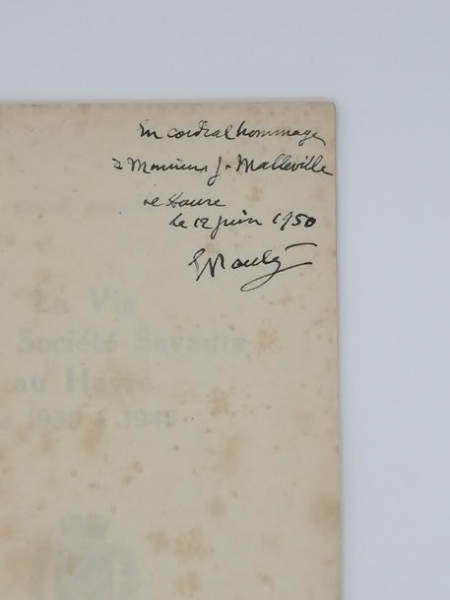 En cordial hommage
à Monsieur J. Malleville
Le Havre
le 12 juin 1950
La Vie
Société Savante
au Havre